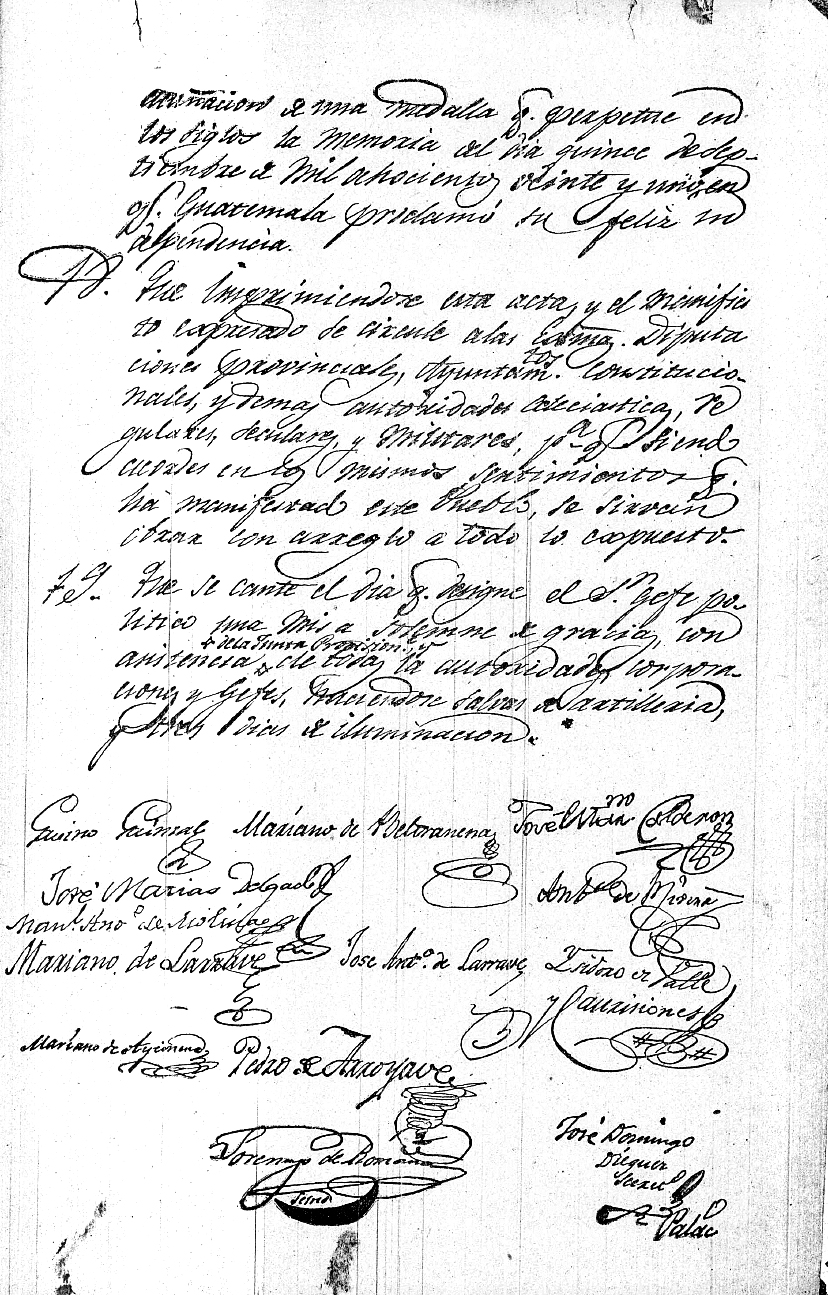 acuñacion de una medalla q. perpetue en
los siglos la memoria del dia quince de sep-
tiembre de Mil ahocientos veinte y uno, en
q. Guatemala proclamó su feliz in
dependencia.
18. Que Imprimiendose esta acta, y el Manifies
to expresado se circule a las Exmas. Diputa
ciones provinciales, Ayuntamtos. Constitucio-
nales, y demas autoridades eclesiasticas, re
gulares, seculares, y Militares, pa. q. siend
acordes en los mismos sentimientos q.
há manifestad este Pueblo, se sirvan
obrar con arreglo a todo lo expuesto.
19. Que se cante el dia q. designe el Sr. Gefe po-
litico una Misa solemne de gracias, con
asistencia de la Junta Provisional, de todas las autoridades, corpora-
ciones, y Gefes, haciendose salvas de artilleria,
y tres dias de iluminacion.
Gavino Gainza Mariano de Beltranena José Marno Calderon
José Matias Delgado Anto de Rivera
Manl. Anto. de Molina
Mariano de Larrave José Anto. de Larrave Isidoro de Valle
y Castriciones
Mariano de Aycinena Pedro de Arroyave
Lorenzo de Romaña José Domingo
Dieguez
Secreto
Secreo
Palac